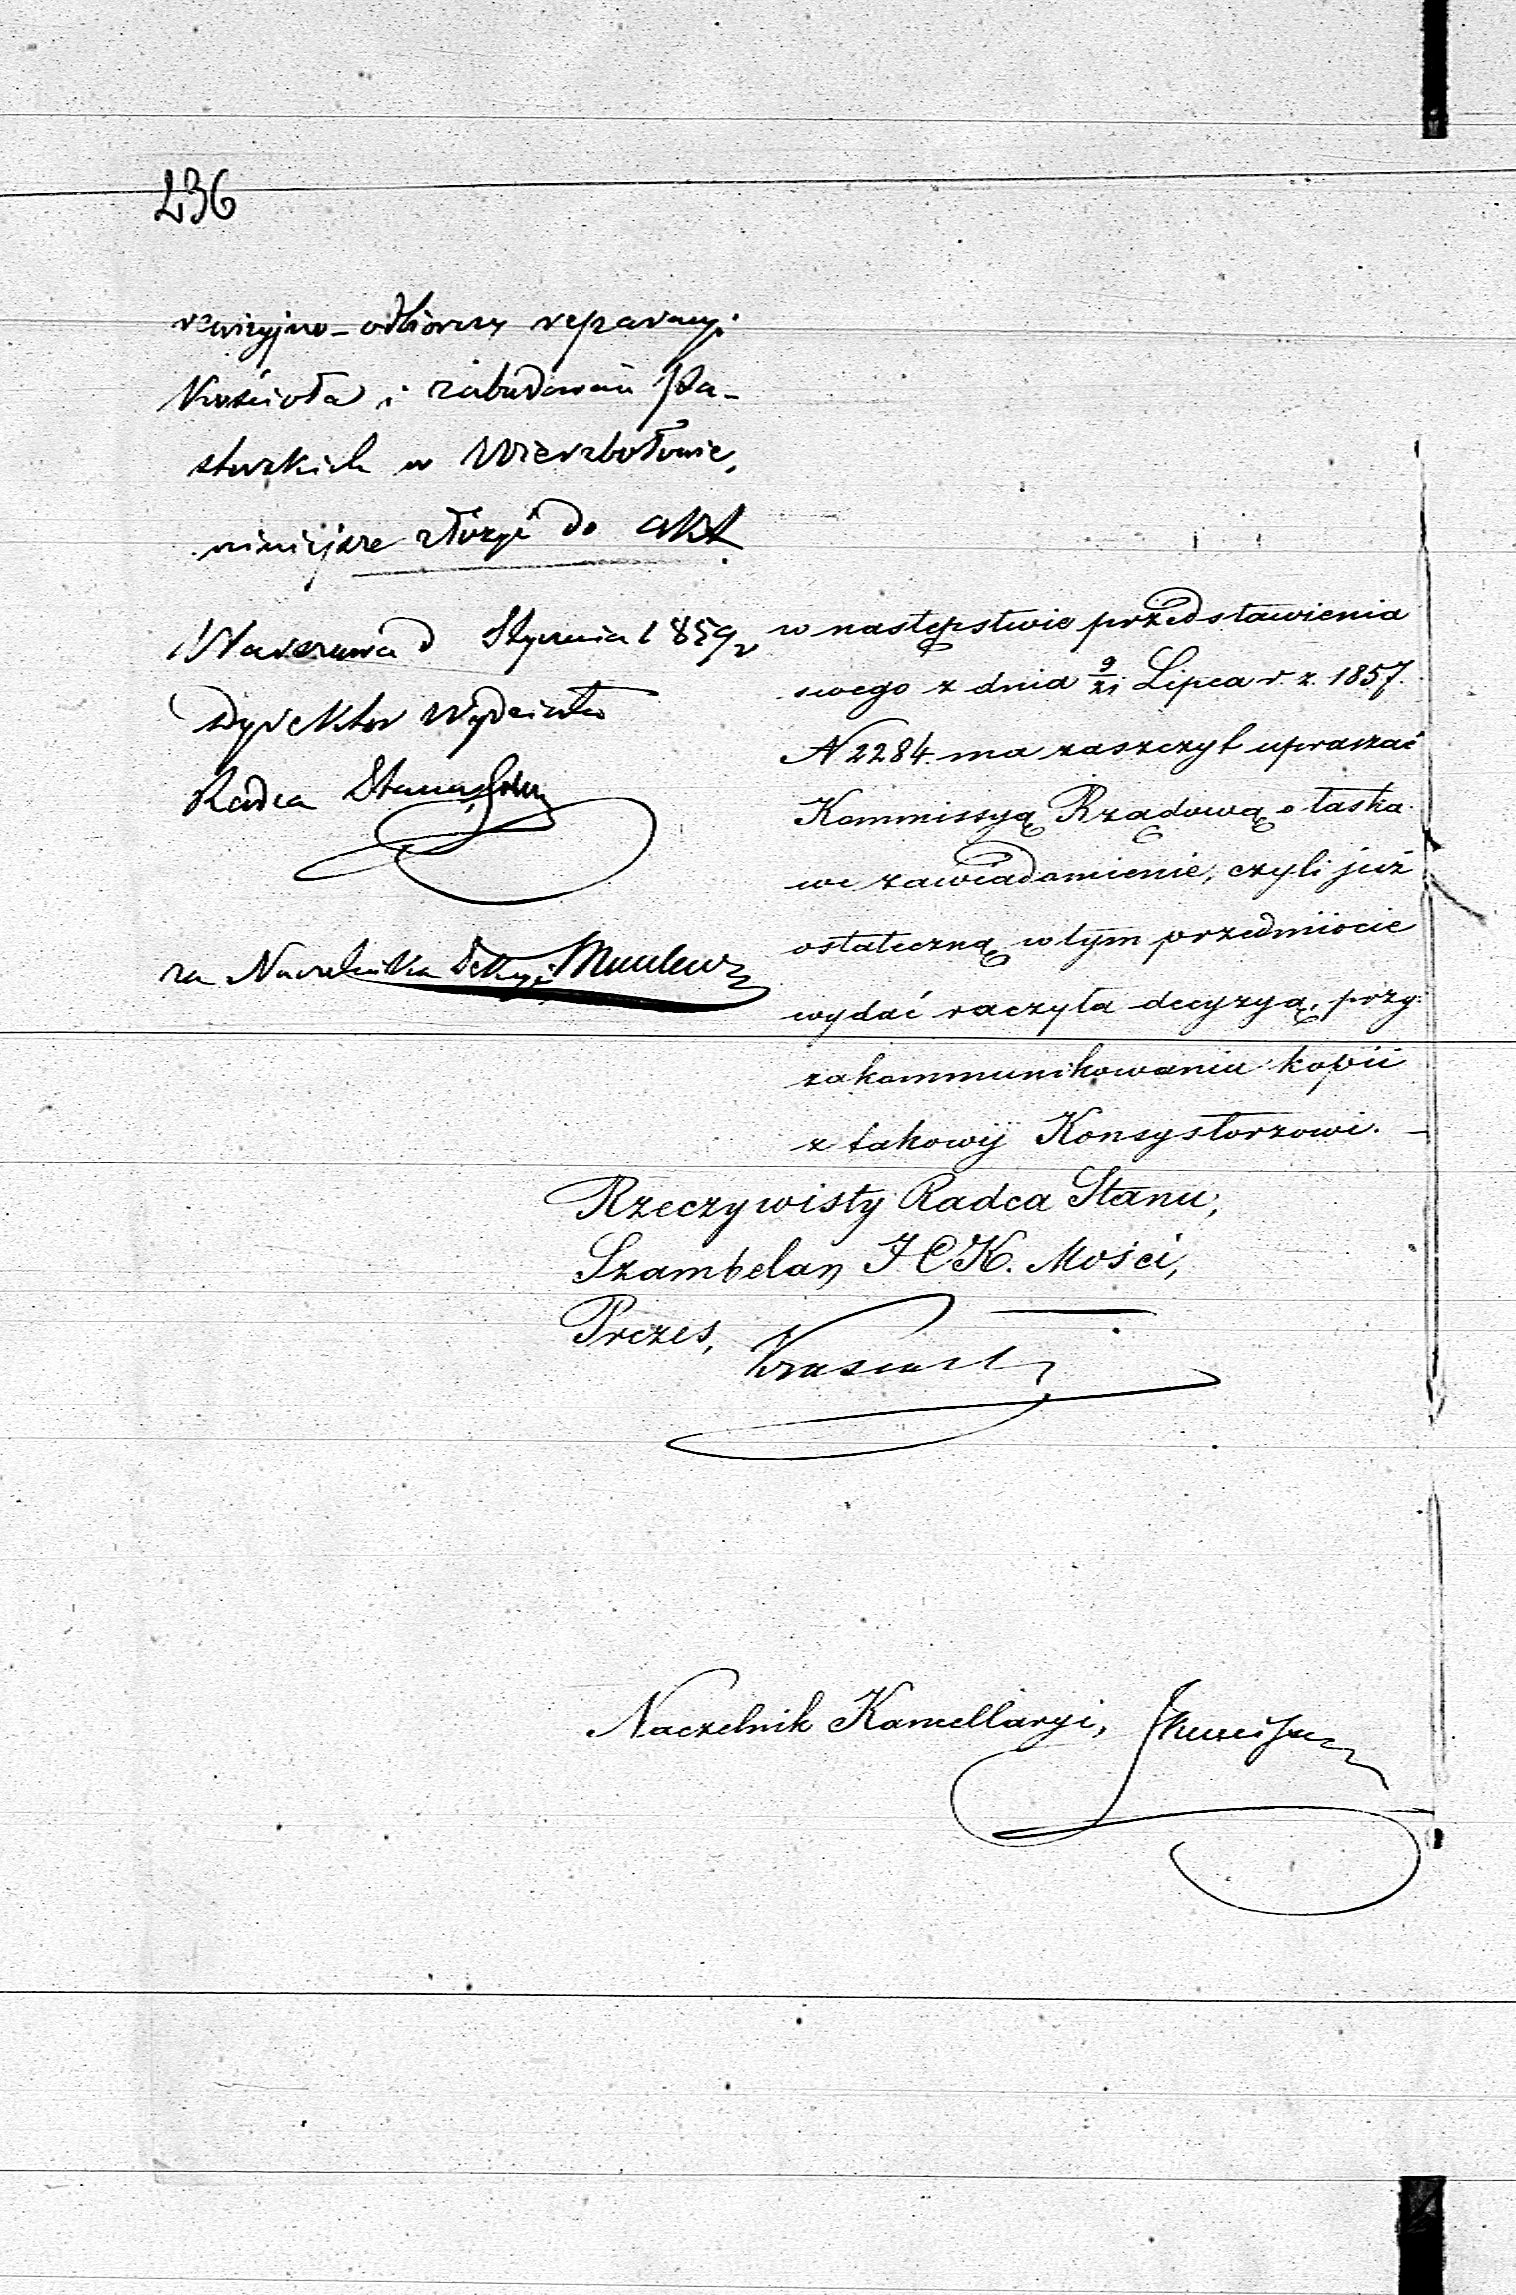 236
rewizyjno-odbiorczy reparacyi
Kościoła i zabudowań Pa-
storskich w Wierzbołowie,
niniejsze złożyć do akt.
Warszawa d Stycznia 1859 r
Dyrektor Wydziału
Radca Stanu
za Naczelnika Sekcyi
w następstwie przedstawienia
swego z dnia 9/21 Lipca r. z. 1857.
N 2284. ma zaszczyt upraszać
Kommissyą Rządową o łaska-
we zawiadomienie, czyli już
ostateczną w tym przedmiocie
wydać raczyła decyzyą, przy
zakommunikowaniu kopii
z takowéj Konsystorzowi.
Rzeczywisty Radca Stanu,
Szambelan J C K. Mości,
Prezes,
Naczelnik Kancellaryi,